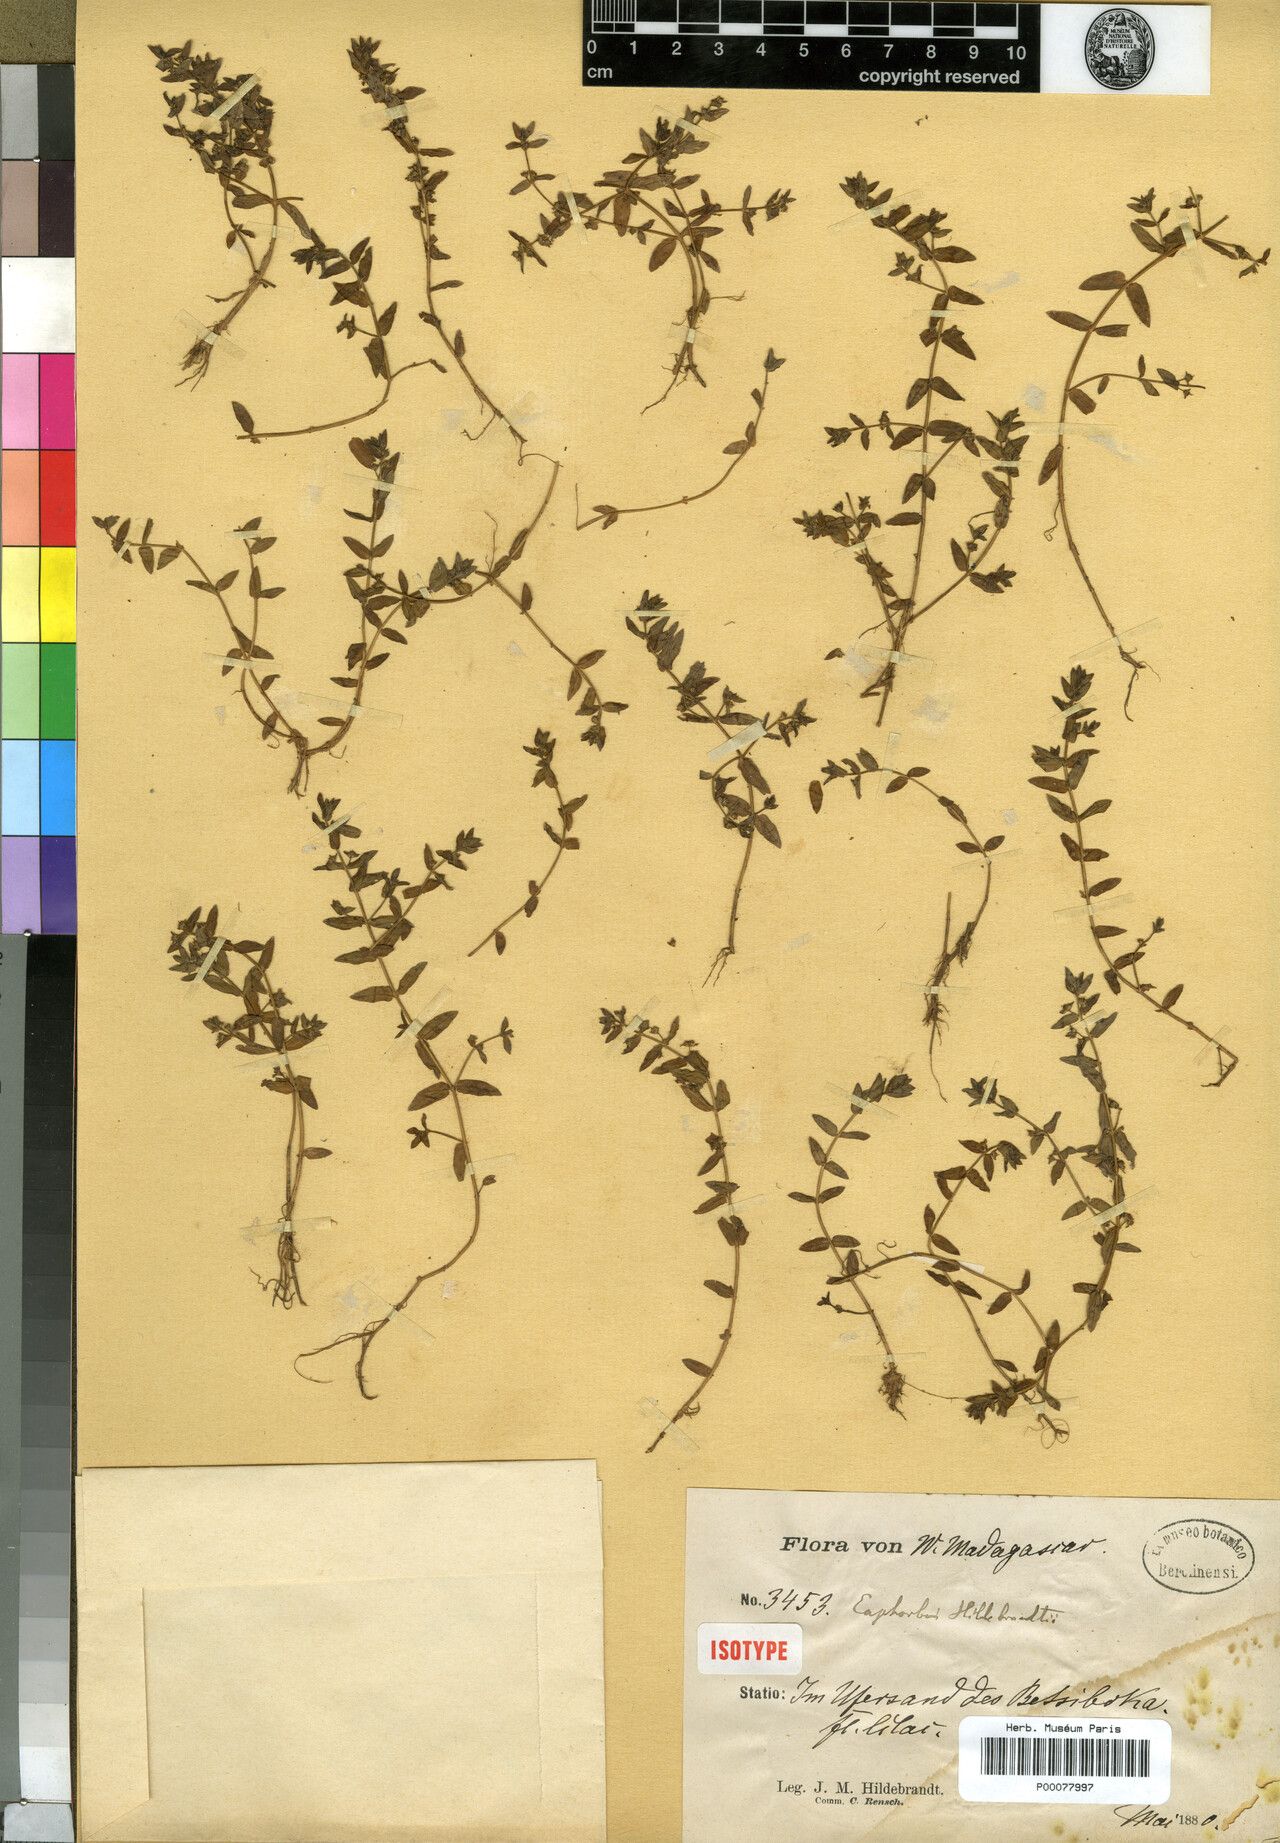 0 1 2 3 4 5 6 7 8 9 10
cm
copyright reserved
MUSEUM
NATIONAL
D'HISTOIRE
NATURELLE
Flora von W. Madagascar.
E museo botanico
Berolinensi
No. 3453. Euphorbia Hildebrandtii
ISOTYPE
Statio: Im Ufersand des Betsiboka.
fl. lilac.
Herb. Muséum Paris
P00077997
Leg. J. M. Hildebrandt.
Comm. C. Rensch.
Mai 1880.